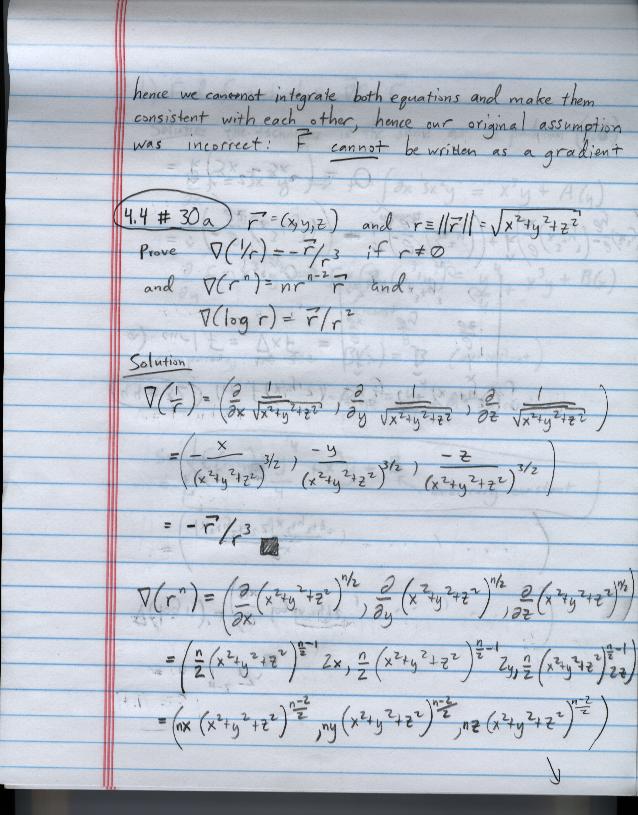 hence we cannot integrate both equations and make them
consistent with each other, hence our original assumption
was incorrect: F⃗ cannot be written as a gradient
4.4 # 30a r⃗ = (x,y,z) and r ≡ ||r⃗|| = √(x²+y²+z²)
Prove ∇(1/r) = -r⃗/r³ if r ≠ 0
and ∇(rⁿ) = nrⁿ⁻² r⃗ and
∇(log r) = r⃗/r²
Solution
∇(1/r) = (∂/∂x 1/√(x²+y²+z²), ∂/∂y 1/√(x²+y²+z²), ∂/∂z 1/√(x²+y²+z²))
= (-x/(x²+y²+z²)^3/2, -y/(x²+y²+z²)^3/2, -z/(x²+y²+z²)^3/2)
= -r⃗/r³ ■
∇(rⁿ) = (∂/∂x (x²+y²+z²)^n/2, ∂/∂y (x²+y²+z²)^n/2, ∂/∂z (x²+y²+z²)^n/2)
= (n/2 (x²+y²+z²)^(n/2-1) 2x, n/2 (x²+y²+z²)^(n/2-1) 2y, n/2 (x²+y²+z²)^(n/2-1) 2z)
= (nx (x²+y²+z²)^(n-2)/2, ny (x²+y²+z²)^(n-2)/2, nz (x²+y²+z²)^(n-2)/2)